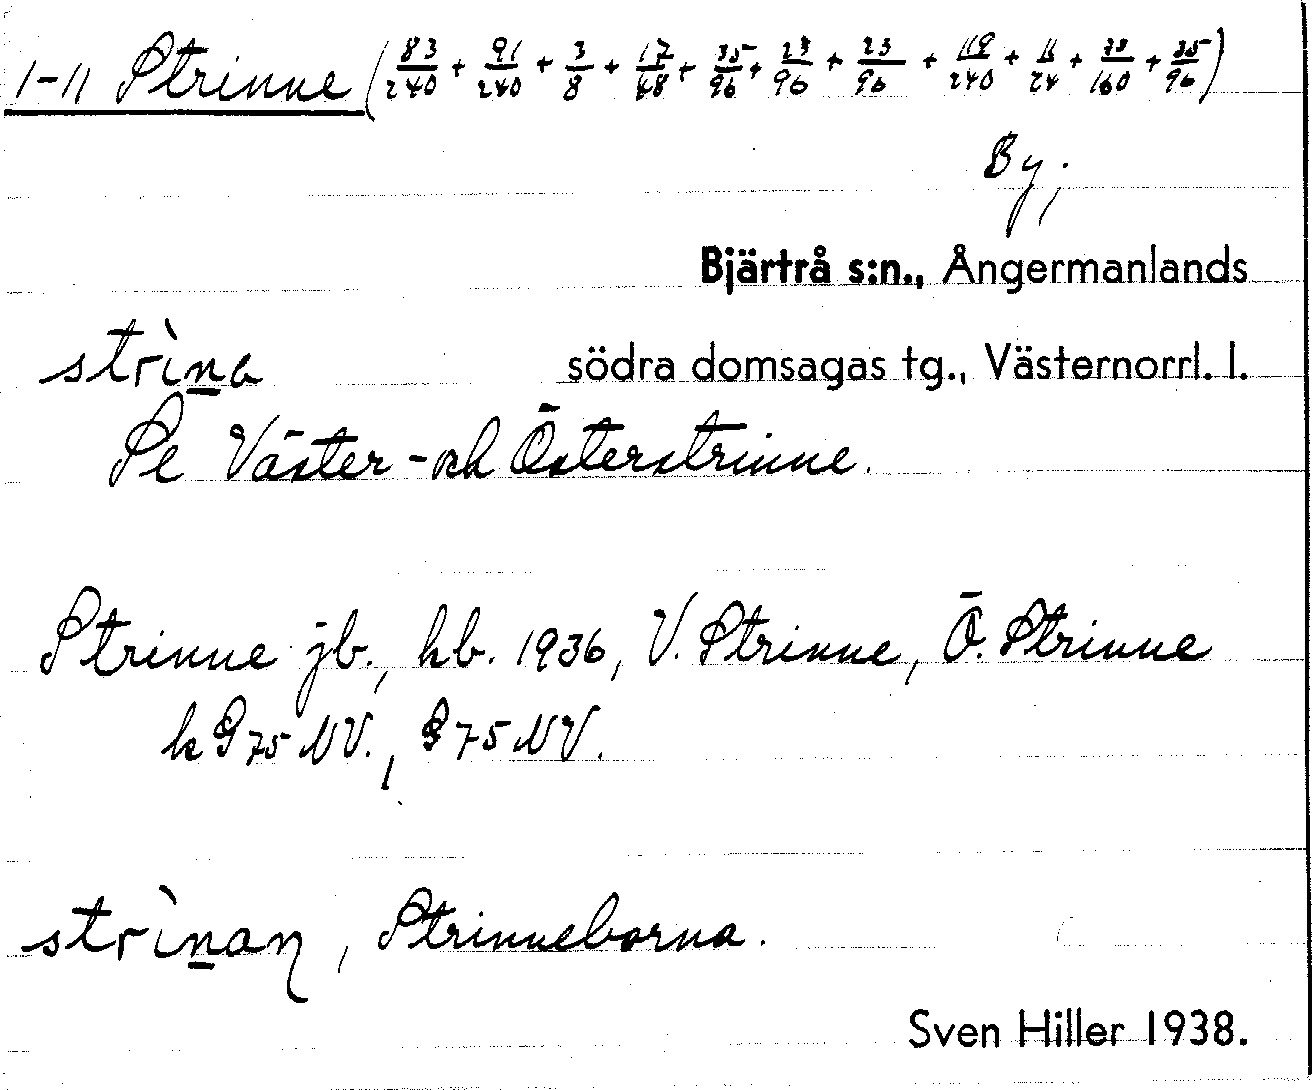 1-11 Strinne (83/240 + 91/240 + 3/8 + 17/48 + 35/96 + 23/96 + 23/96 + 119/240 + 11/24 + 73/160 + 35/96)
By;
Bjärtrå s:n., Ångermanlands
strìna
södra domsagas tg., Västernorrl. l.
Se Väster- och Österstrinne.
Strinne jb., hb. 1936, V. Strinne, Ö. Strinne
k G 75 NV., G 75 NV.
strìnan, Strinneborna.
Sven Hiller 1938.